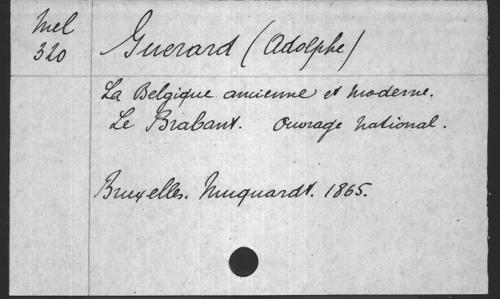 Mel
320
Guerard (Adolphe)
La Belgique ancienne et moderne.
Le Brabant. Ouvrage national.
Bruxelles. Muquardt. 1865.